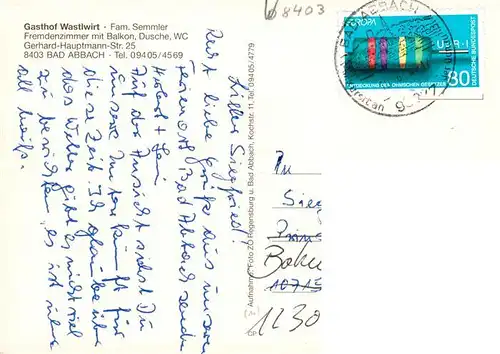 Gasthof Wastlwirt · Fam. Semmler
Fremdenzimmer mit Balkon, Dusche, WC
Gerhard-Hauptmann-Str. 25
8403 BAD ABBACH · Tel. 09405/4569
8403
EUROPA
U=R·I
ENTDECKUNG DES OHMSCHEN GESETZES
DEUTSCHE BUNDESPOST
80
BAD ABBACH
Lieber Siegfried!
Recht liebe Grüße aus unserem
Ferienort Bad Abbach senden
Auf der Ansicht siehst Du
unsere Unterkunft für
diese Zeit. Ich glaube über
das Wetter gibt es nicht viel
zu berichten, es ist über-
all heiß.
Aufnahme: Foto ZO Regensburg u. Bad Abbach, Kochstr. 11, Tel. 09405/4779
An
1230